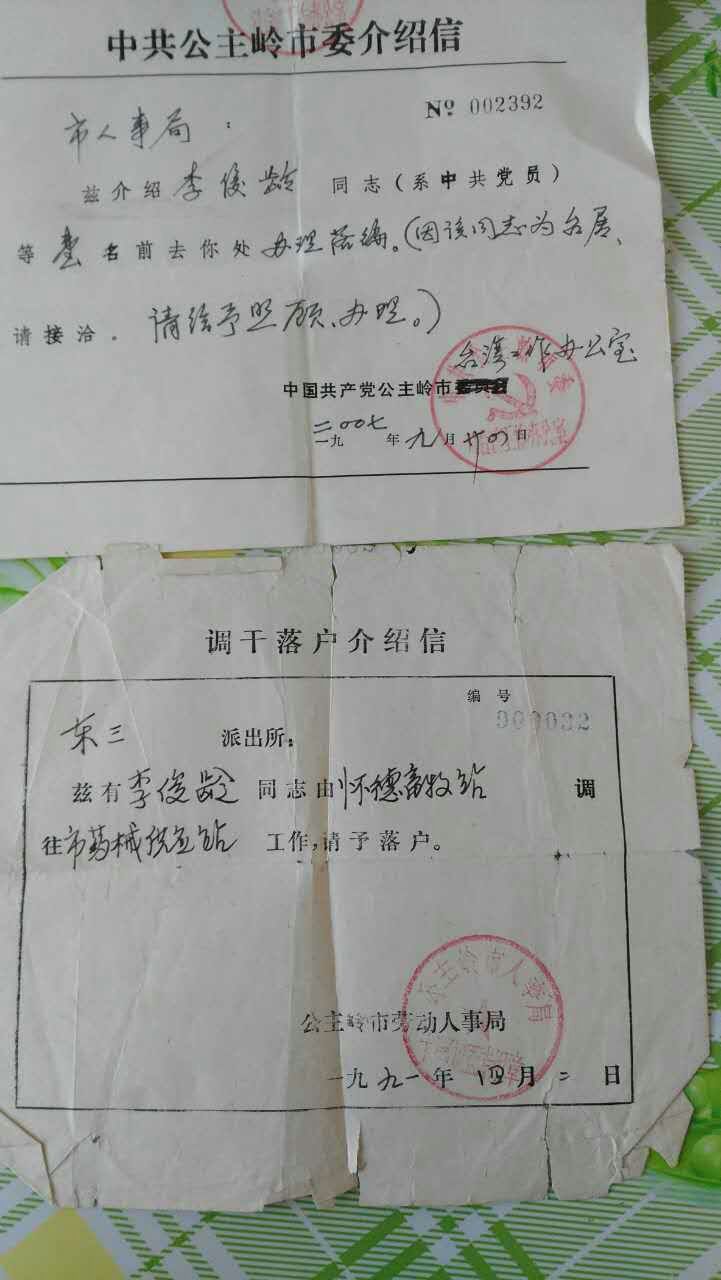 中共公主岭市委介绍信
№ 002392
市人事局：
兹介绍李俊龄 同志（系中共党员）
等壹名前去你处办理落编。（因该同志为台属、
请接洽。请给予照顾、办理。）
台湾工作办公室
中国共产党公主岭市
二00七
一九 年九月廿四日
调干落户介绍信
编号
000032
东三 派出所：
兹有李俊龄同志由怀德畜牧站 调
往市药械供应站 工作，请予落户。
公主岭市人事局
公主岭市劳动人事局
一九九一年四月二日